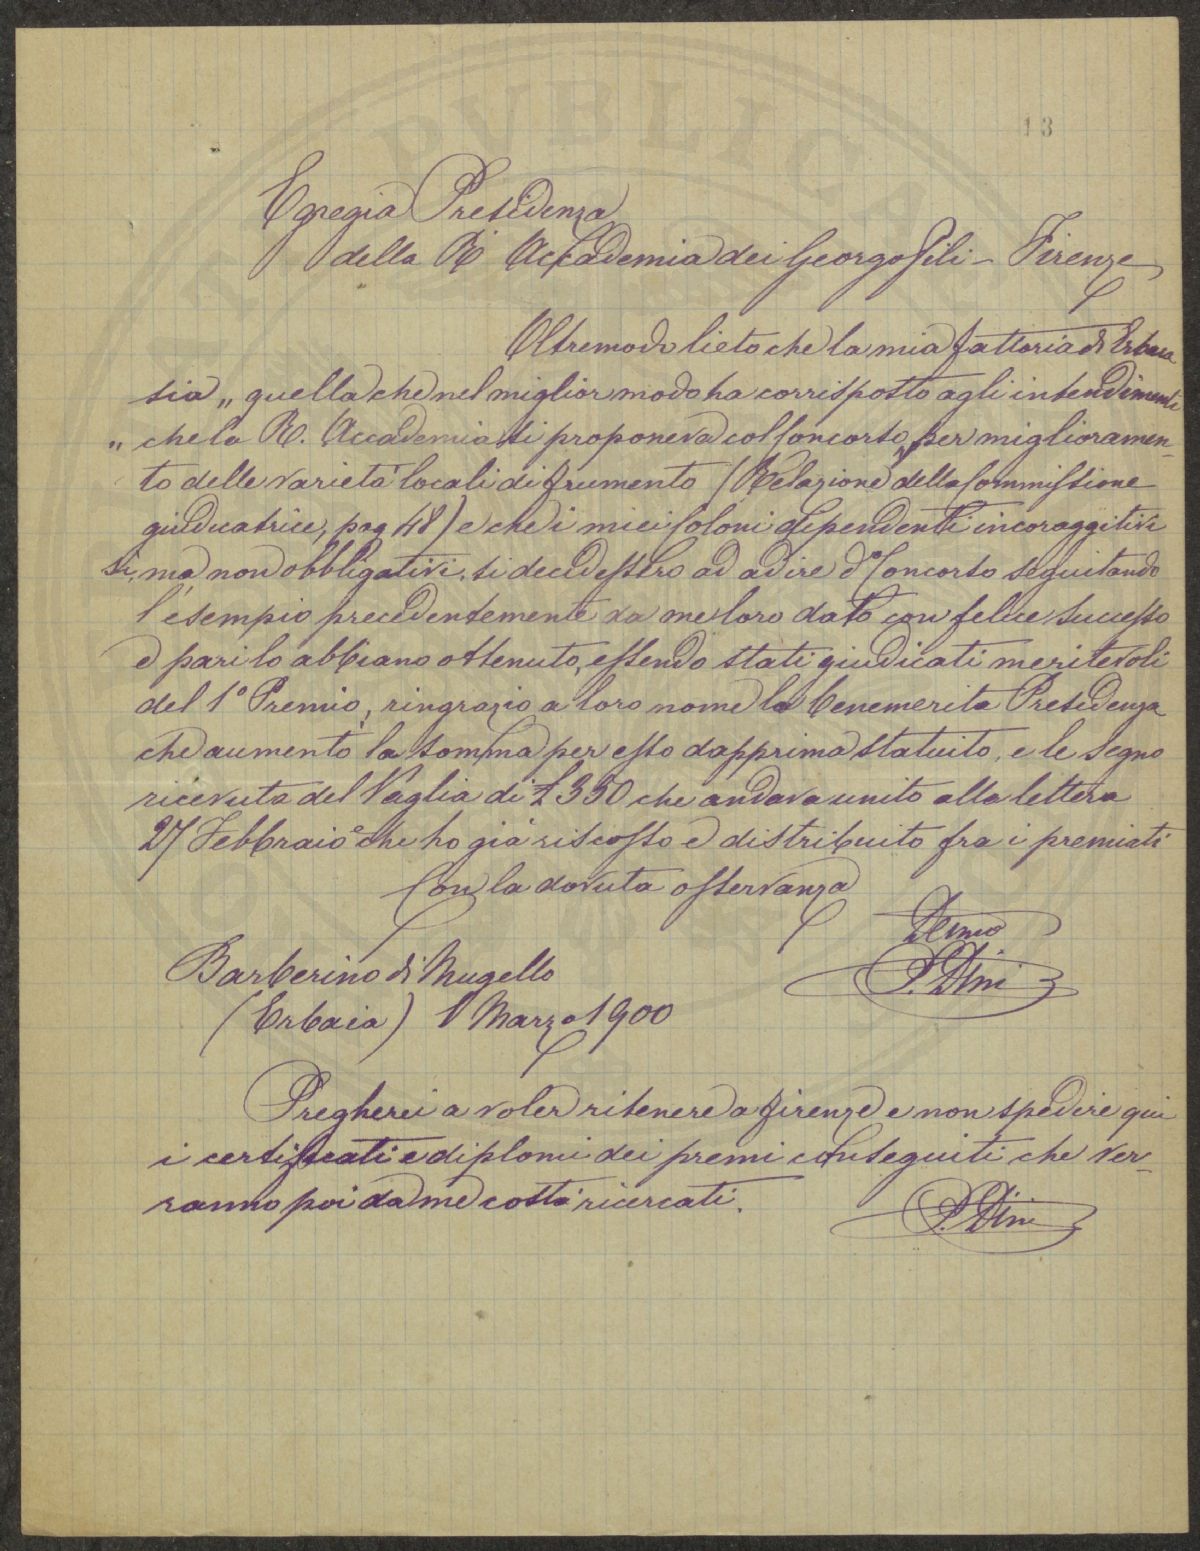 13
Egregia Presidenza
della R. Accademia dei Georgofili - Firenze
Oltremodo lieto che la mia fattoria di Erbaia
sia „ quella che nel miglior modo ha corrisposto agli intendimenti
„ che la R. Accademia si proponeva col Concorso, per miglioramen-
to delle varietà locali di frumento (Relazione della Commissione
giudicatrice, pag 48) e che i miei Coloni dipendenti incoraggitivi
si, ma non obbligativi, si decidessero ad adire al Concorso seguitando
l'esempio precedentemente da me loro dato con felice successo
e pari lo abbiano ottenuto, essendo stati giudicati meritevoli
del 1° Premio, ringrazio a loro nome la benemerita Presidenza
che aumentò la somma per esso dapprima statuito, e le segno
ricevuta del Vaglia di £ 350 che andava unito alla lettera
27 Febbraio e che ho già riscosso e distribuito fra i premiati
Con la dovuta osservanza
Devmo
P. Dini
Barberino di Mugello
(Erbaia) 1 Marzo 1900
Pregherei a voler ritenere a Firenze e non spedire qui
i certificati e diplomi dei premi conseguiti che ver-
ranno poi da me costà ricercati.
P. Dini